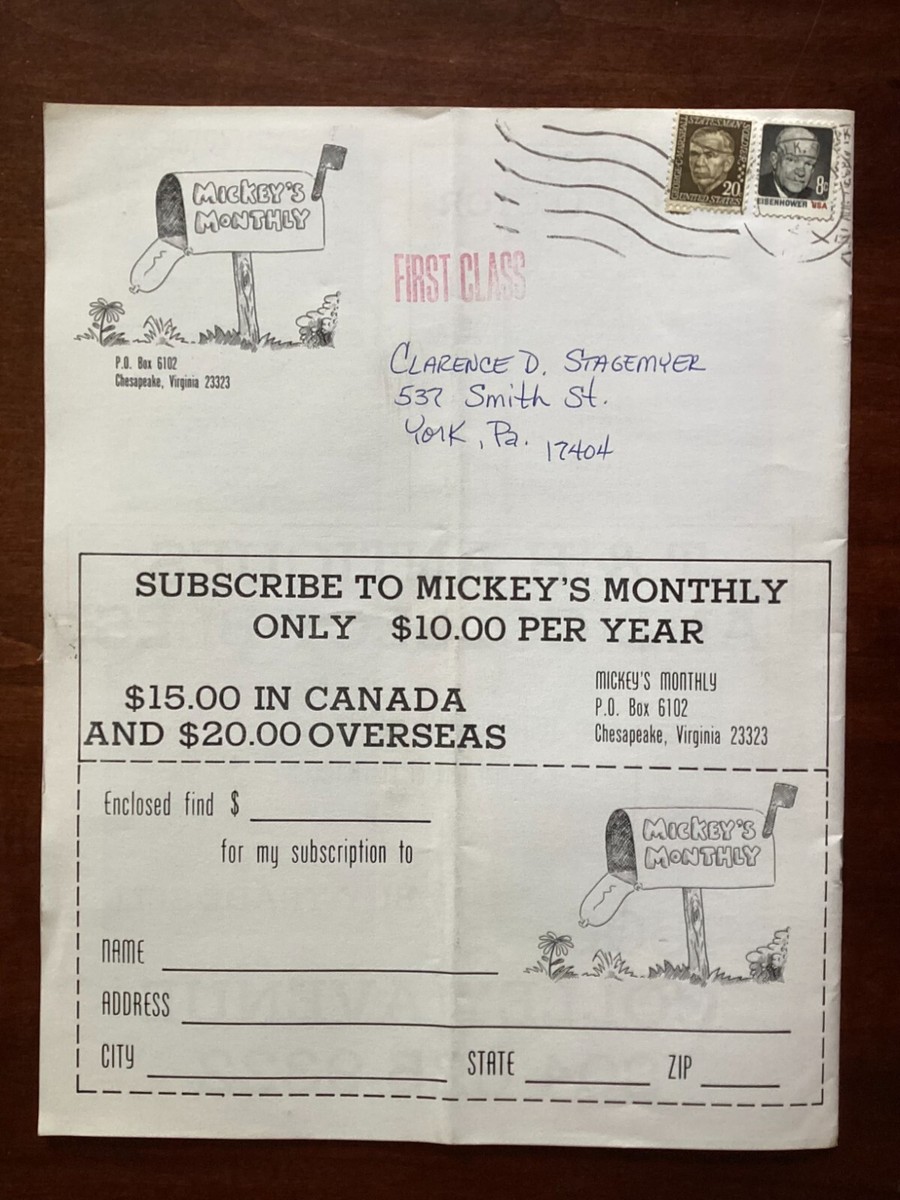 MICKEY'S
MONTHLY
P.O. Box 6102
Chesapeake, Virginia 23323
STATESMAN
GEORGE C. MARSHALL
20
UNITED STATES
8¢
EISENHOWER USA
FIRST CLASS
CLARENCE D. STAGEMYER
537 Smith St.
York, Pa. 17404
SUBSCRIBE TO MICKEY'S MONTHLY
ONLY $10.00 PER YEAR
$15.00 IN CANADA
AND $20.00 OVERSEAS
MICKEY'S MONTHLY
P.O. Box 6102
Chesapeake, Virginia 23323
Enclosed find $
for my subscription to
MICKEY'S
MONTHLY
NAME
ADDRESS
CITY STATE ZIP